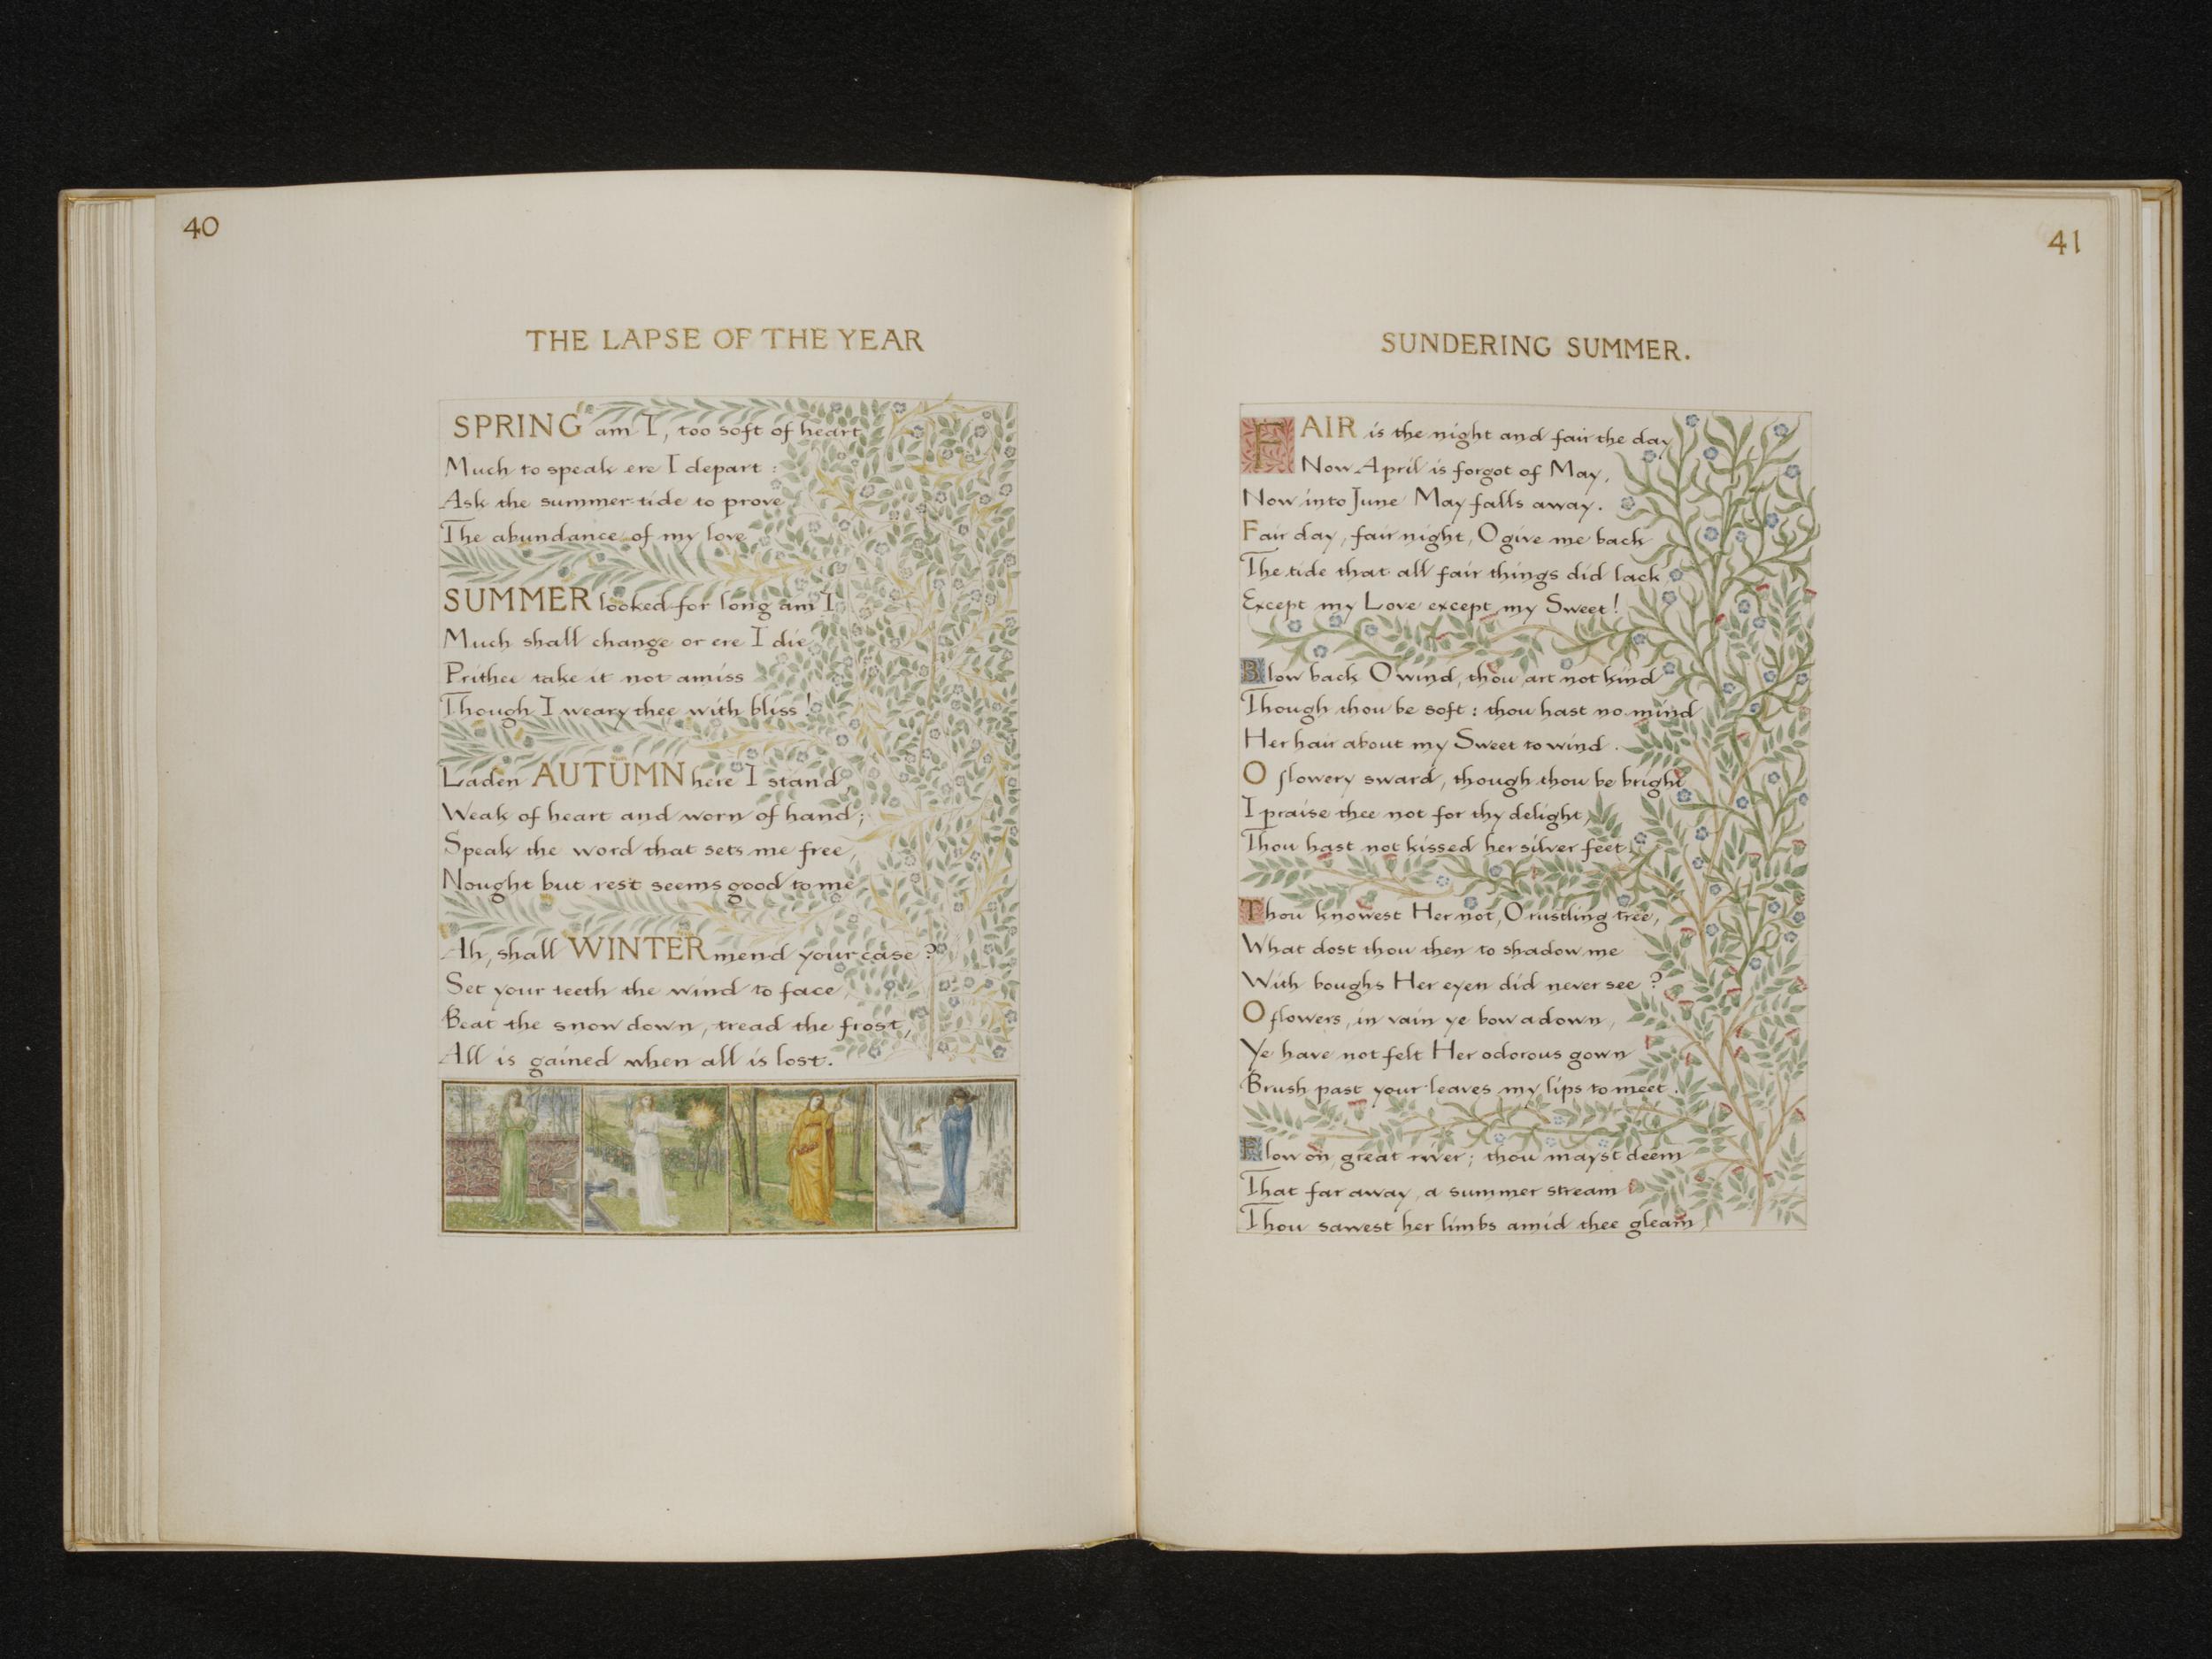 40
THE LAPSE OF THE YEAR
SPRING am I, too soft of heart
Much to speak ere I depart :
Ask the summer-tide to prove
The abundance of my love
SUMMER looked for long am I
Much shall change or ere I die
Prithee take it not amiss
Though I weary thee with bliss!
Laden AUTUMN here I stand
Weak of heart and worn of hand;
Speak the word that sets me free,
Nought but rest seems good to me
Ah, shall WINTER mend your case?
Set your teeth the wind to face
Beat the snow down, tread the frost,
All is gained when all is lost.
41
SUNDERING SUMMER.
FAIR is the night and fair the day
Now April is forgot of May,
Now into June May falls away.
Fair day, fair night, O give me back
The tide that all fair things did lack
Except my Love except my Sweet!
Blow back O wind, thou art not kind
Though thou be soft : thou hast no mind
Her hair about my Sweet to wind.
O flowery sward, though thou be bright
I praise thee not for thy delight,
Thou hast not kissed her silver feet.
Thou knowest Her not, O rustling tree,
What dost thou then to shadow me
With boughs Her eyen did never see?
O flowers, in vain ye bow adown,
Ye have not felt Her odorous gown
Brush past your leaves my lips to meet.
Flow on, great river; thou mayst deem
That far away, a summer stream
Thou sawest her limbs amid thee gleam,